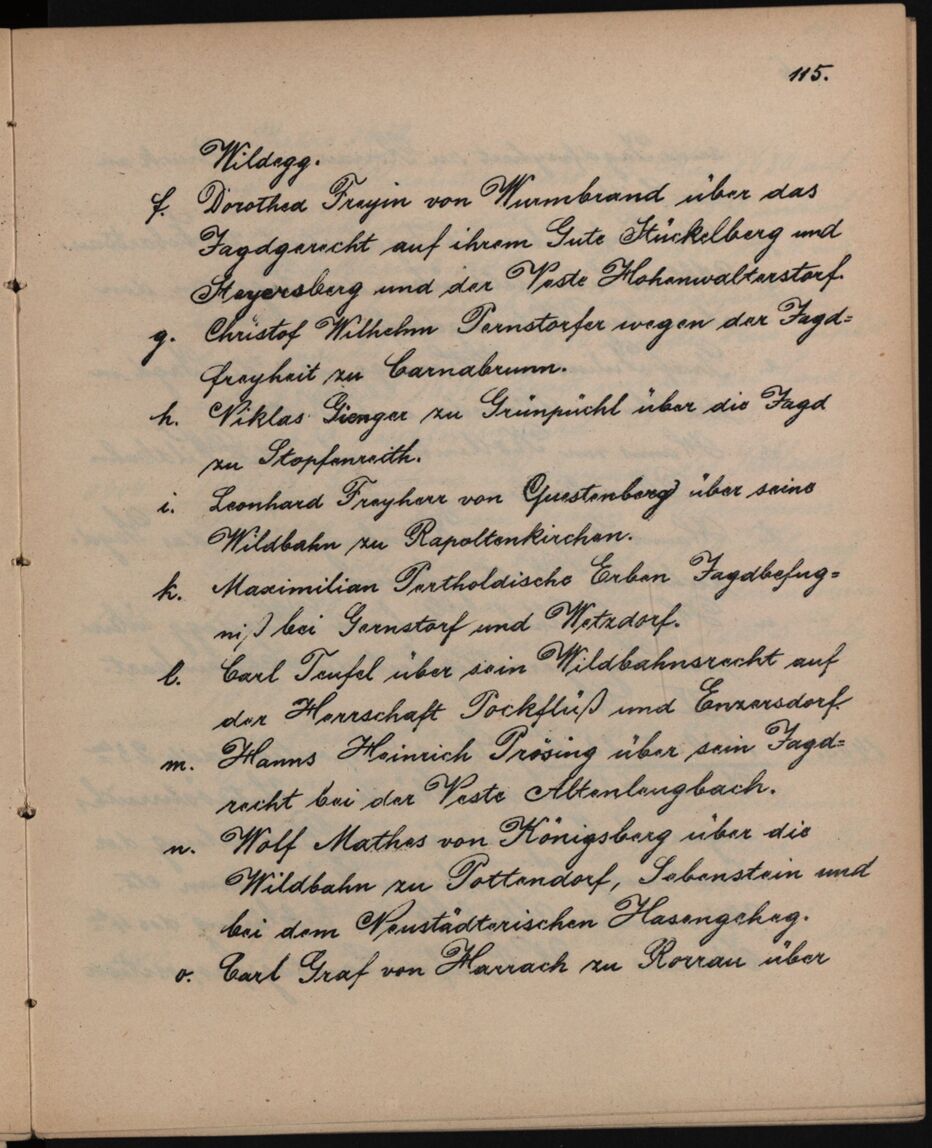 115.
Wildegg.
f. Dorothea Freyin von Wurmbrand über das
Jagdgerecht auf ihrem Gute Stückelberg und
Steyersberg und der Veste Hohenwalterstorf.
g. Christof Wilhelm Pernstorfer wegen der Jagd=
freyheit zu Carnabrunn.
h. Niklas Gienger zu Grünpüchl über die Jagd
zu Stopfenreith.
i. Leonhard Freyherr von Questenberg über seine
Wildbahn zu Rapoltenkirchen.
k. Maximilian Pertholdische Erben Jagdbefug=
niß bei Gernstorf und Wetzdorf.
l. Carl Teufel über sein Wildbahnsrecht auf
der Herrschaft Pockflüß und Enzersdorf
m. Hanns Heinrich Prösing über sein Jagd=
recht bei der Veste Altenlengbach.
n. Wolf Mathes von Königsberg über die
Wildbahn zu Pottendorf, Sebenstein und
bei dem Neustädterischen Hasengeheg.
o. Carl Graf von Harrach zu Rorrau über